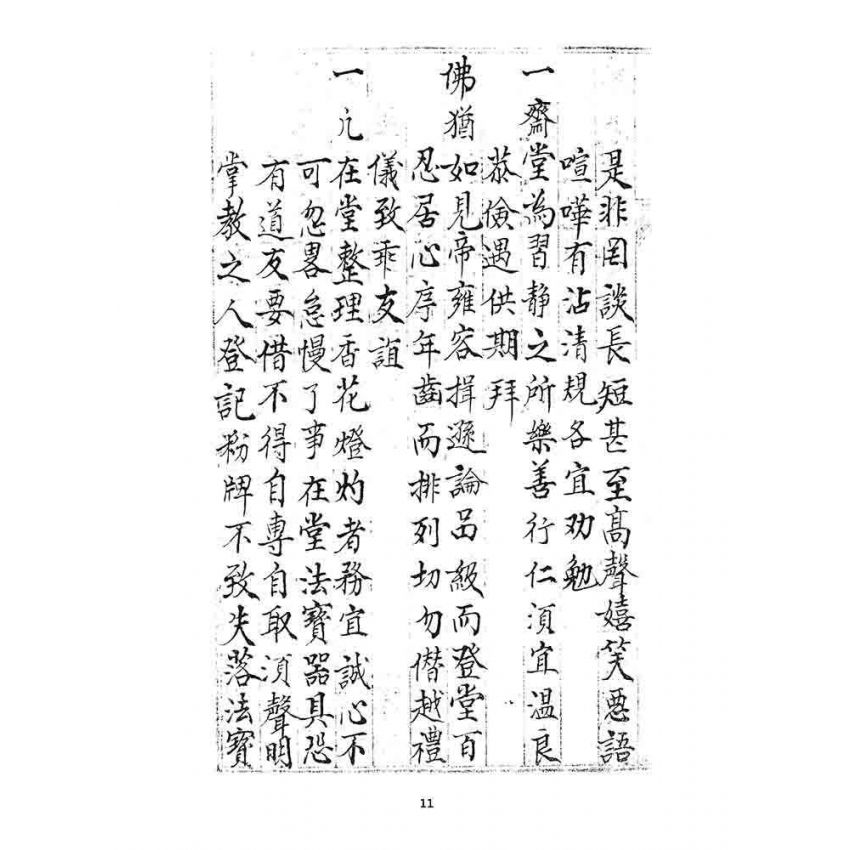 是非罔談長短甚至高聲嬉笑惡語
喧嘩有沾清規各宜劝勉
一齋堂為習静之所樂善行仁湏宜温良
恭儉遇供期拜
佛猶如見帝雍容揖遜論品級而登堂百
忍居心序年齒而排列切勿僭越禮
儀致乖友誼
一凢在堂整理香花燈灼者務宜誠心不
可忽畧怠慢了亊在堂法寶器具恐
有道友要借不得自專自取湏聲明
掌教之人登記粉牌不致失落法寶
11